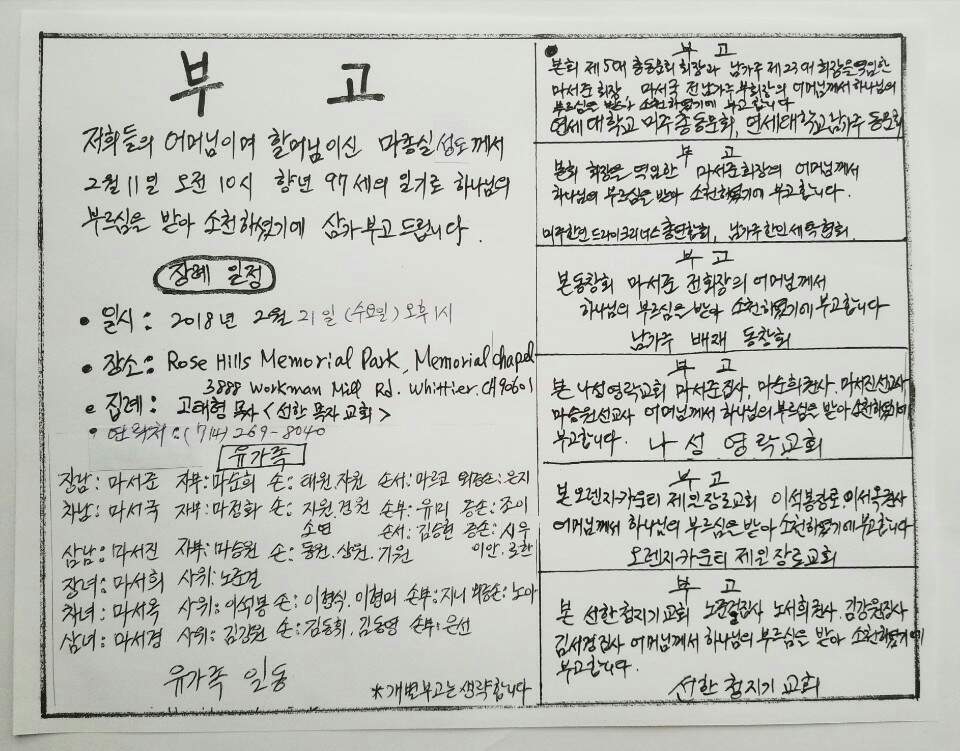 부 고
저희들의 어머님이며 할머님이신 마홍실 성도께서
2월 11일 오전 10시 향년 97세의 일기로 하나님의
부르심을 받아 소천하셨기에 삼가 부고 드립니다.
장례 일정
• 일시: 2018년 2월 21일 (수요일) 오후 1시
• 장소: Rose Hills Memorial Park, Memorial chapel
3888 Workman Mill Rd. Whittier. CA 90601
• 집례: 고태형 목사 <선한 목자 교회>
• 연락처: (714) 269-8040
유가족
장남: 마서준 자부: 마순희 손: 태원, 자원 손서: 마르코 외증손: 은지
차남: 마서국 자부: 마정화 손: 지원, 전원 손부: 유미 증손: 조이
소연 손서: 김승현 증손: 시우
삼남: 마서진 자부: 마승원 손: 동원, 상원, 기원 이안, 로한
장녀: 마서희 사위: 노준걸
차녀: 마서옥 사위: 이석봉 손: 이형식, 이현미 손부: 지니 외증손: 노아
삼녀: 마서경 사위: 김강원 손: 김동희, 김동영 손부: 은선
유가족 일동
*개별부고는 생략합니다
• 부 고
본회 제5대 총동문회 회장과 남가주 제23대 회장을 역임한
마서준 회장 마서국 전 남가주 부회장의 어머님께서 하나님의
부르심을 받아 소천하셨기에 부고합니다
연세대학교 미주 총동문회, 연세대학교 남가주 동문회
부 고
본회 회장을 역임한 마서준 회장의 어머님께서
하나님의 부르심을 받아 소천하셨기에 부고합니다.
미주한인 드라이크리너스 총연합회, 남가주 한인 세탁협회.
부 고
본동창회 마서준 전회장의 어머님께서
하나님의 부르심을 받아 소천하셨기에 부고합니다
남가주 배재 동창회
부 고
본 나성영락교회 마서준집사, 마순희권사, 마서진선교사
마승원선교사 어머님께서 하나님의 부르심을 받아 소천하셨기에
부고합니다. 나 성 영 락 교 회
부 고
본 오렌지카운티 제일장로교회 이석봉장로, 이서옥권사
어머님께서 하나님의 부르심을 받아 소천하셨기에 부고합니다
오렌지카운티 제일 장로교회
부 고
본 선한청지기교회 노준걸집사 노서희권사, 김강원집사
김서경집사 어머님께서 하나님의 부르심을 받아 소천하셨기에
부고합니다.
선한 청지기 교회